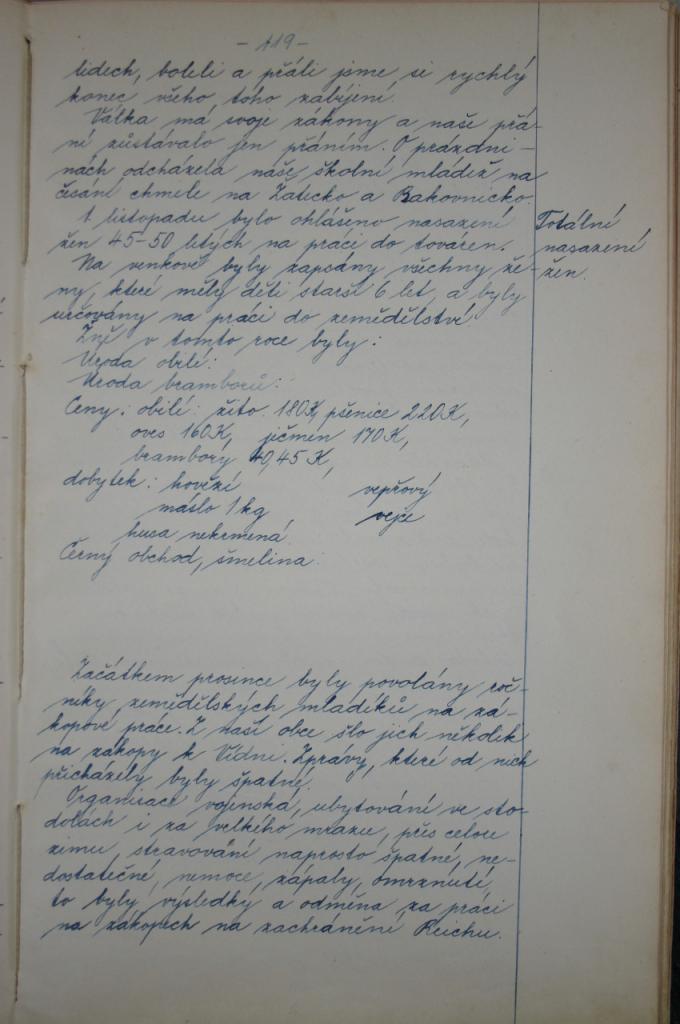 - 119 -
lidech, boleli a přáli jsme si rychlý
konec všeho toho zabíjení.
Válka má svoje zákony a naše přá-
ní zůstávalo jen přáním. O prázdni-
nách odcházela naše školní mládež na
česání chmele na Žatecko a Rakovnicko.
1 listopadu bylo ohlášeno nasazení
žen 45-50 letých na práci do továren.
Totální
nasazení
žen.
Na venkově byly zapsány všechny že-
ny, které měly děti starší 6 let, a byly
určovány na práci do zemědělství.
Žně v tomto roce byly:
Úroda obilí:
Úroda bramborů:
Ceny: obilí: žito 180K, pšenice 220K,
oves 160K, ječmen 170K,
brambory 40,45 K,
dobytek: hovězí vepřový
máslo 1 kg vejce
husa nekrmená
Černý obchod, šmelina:
Začátkem prosince byly povolány roč-
níky zemědělských mladíků na zá-
kopové práce. Z naší obce šlo jich několik
na zákopy k Vídni. Zprávy, které od nich
přicházely byly špatné.
Organisace vojenská, ubytování ve sto-
dolách i za velkého mrazu, přes celou
zimu, stravování naprosto špatné, ne-
dostatečné, nemoce, zápaly, omrznutí,
to byly výsledky a odměna za práci
na zákopech na zachránění Reichu.